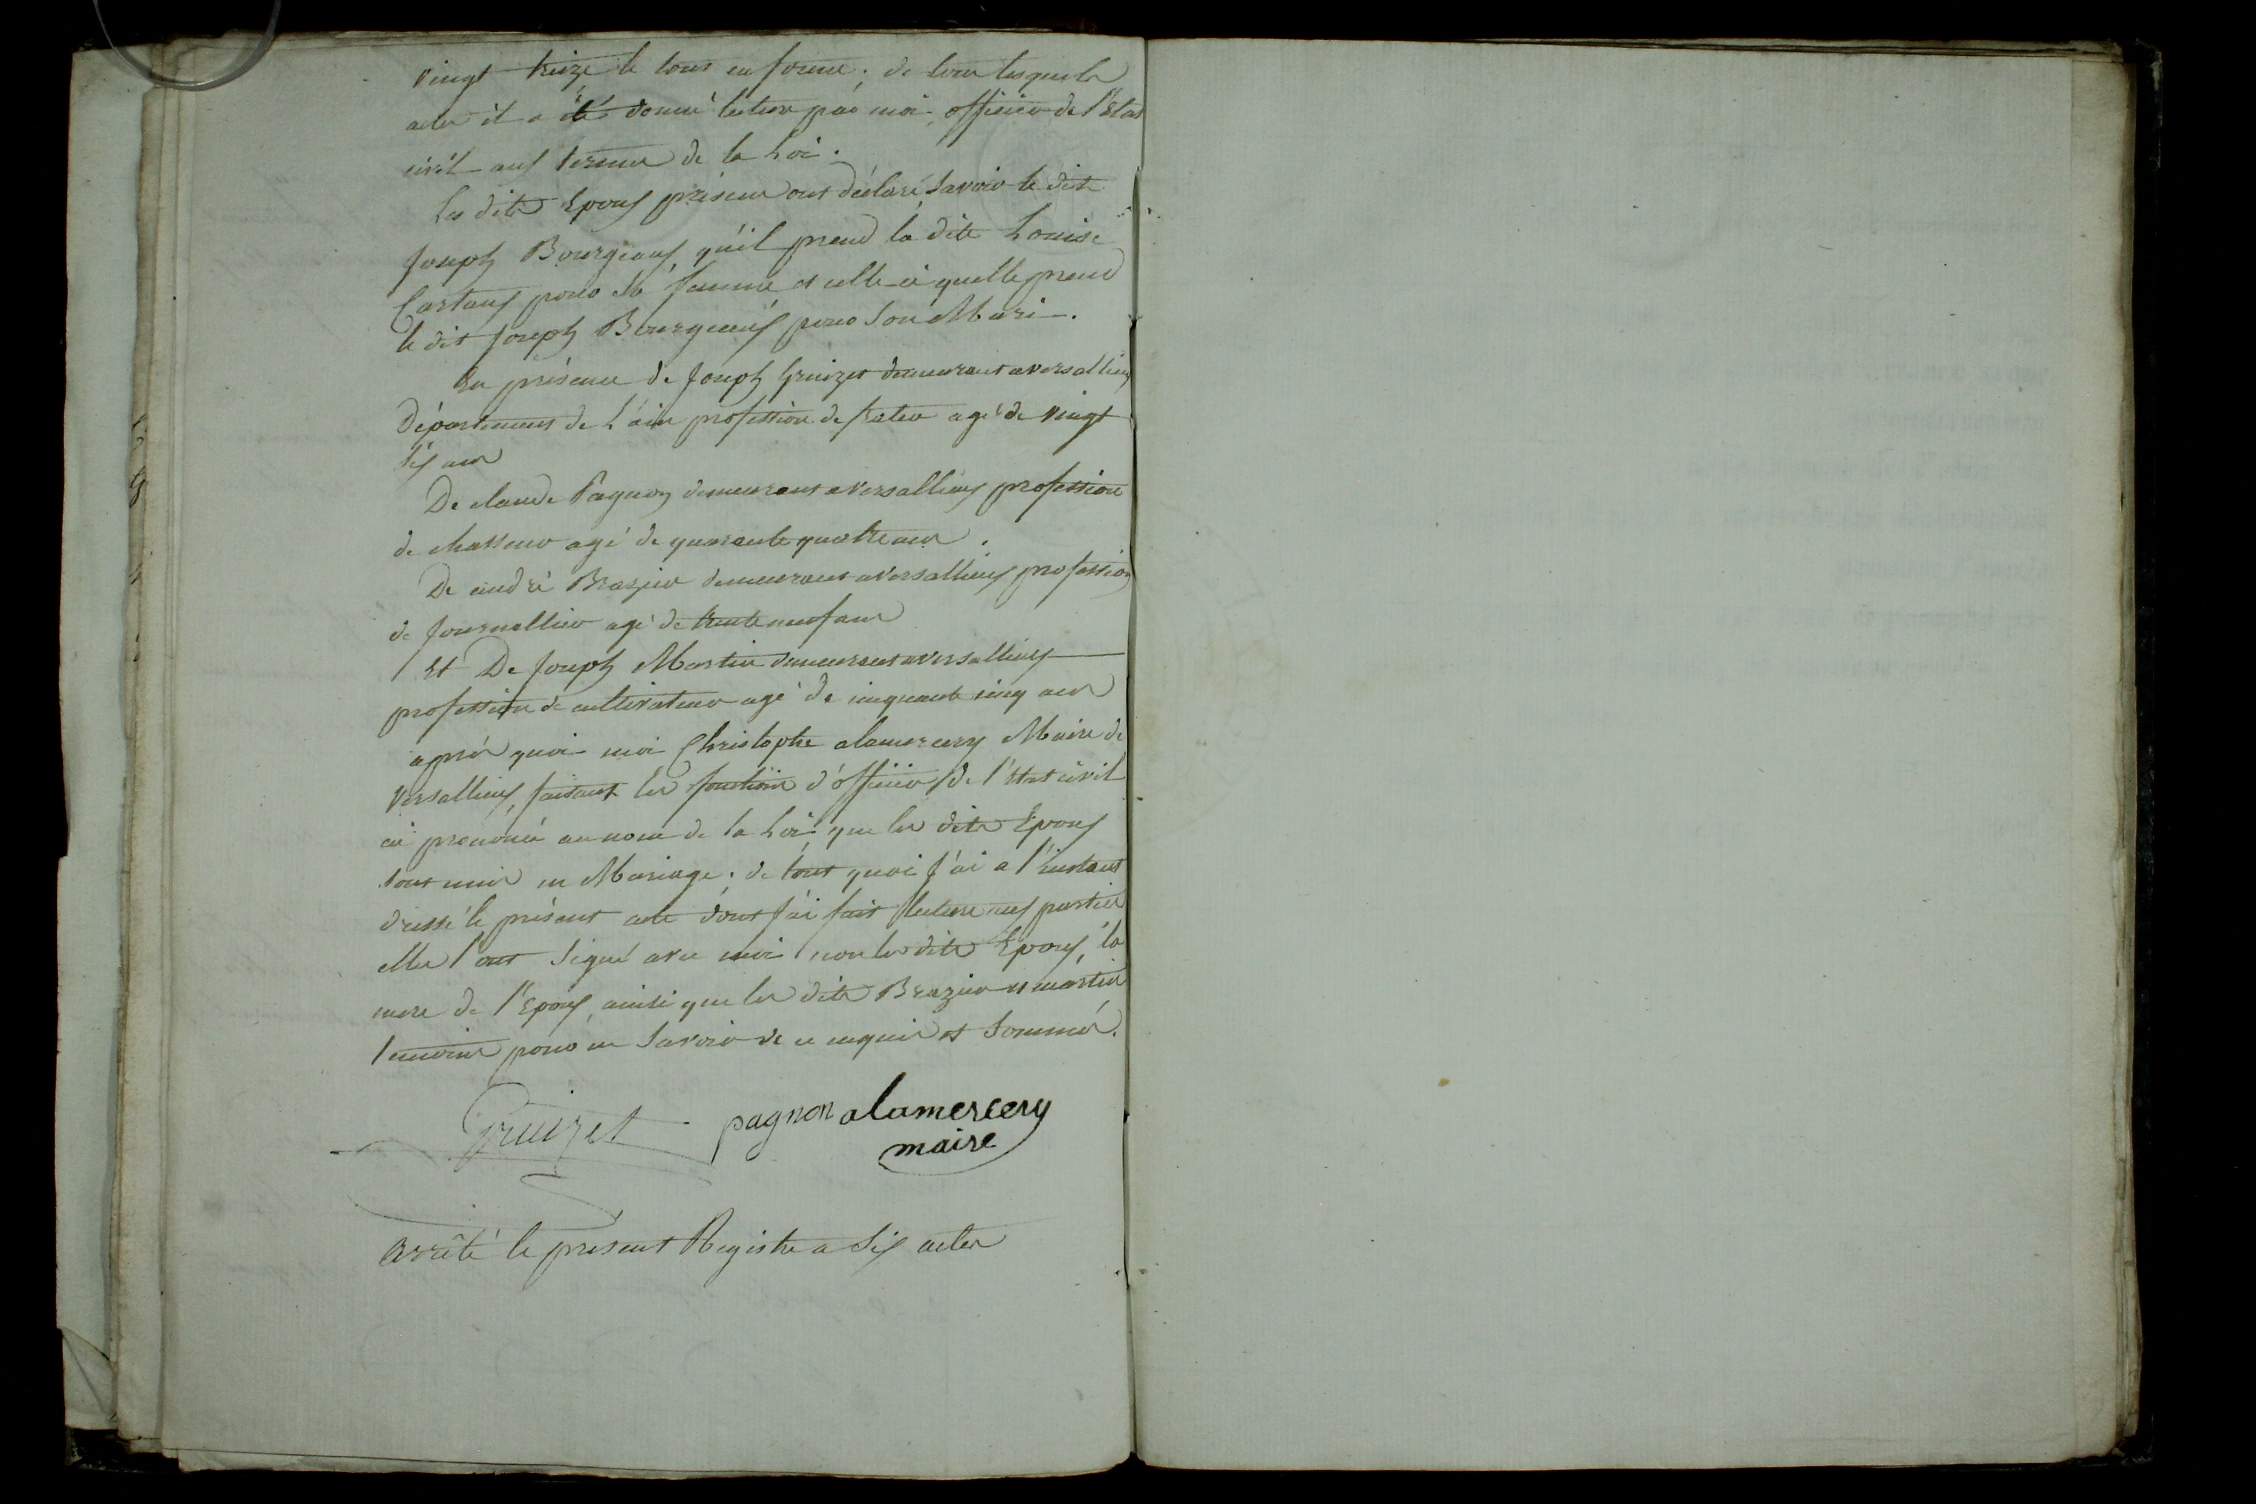 vingt treize le tout en forme ; de tous lesquels
actes il a été donné lecture par moi, officier de l'Etat
civil aux termes de la Loi.
Les dits Epoux présens ont déclaré Savoir le dit
Joseph Bourgeaux, qu'il prend la dite Louise
Cartaux pour sa femme et celle-ci quelle prend
le dit Joseph Bourgeaux pour Son Mari.
En présence de Joseph Gruizet demeurant a versallieux
Département de L'ain profession de frater agé de vingt
six ans
De claude Pagnon demeurant a versallieux profession
de chasseur agé de quarante quatre ans.
De andré Brazier demeurant a versallieux profession
de Journallier agé de trente neuf ans
Et De Joseph Martin demeurant a versallieux
profession de cultivateur agé de cinquante cinq ans
après quoi moi Christophe alamercery Maire de
Versallieux, faisant les fonctions d'officier de l'Etat civil
ai prononcé au nom de la Loi que les dits Epoux
sont unis en Mariage ; de tout quoi j'ai a l'instant
dressé le présent acte dont j'ai fait lecture aux parties
elles l'ont Signé avec moi non les dits Epoux, la
mere de l'Epoux, ainsi que les dits Brazier et martin
temoins pour ne Savoir de ce requis et Sommés.
Gruizet pagnon alamercery
maire
Arrêté le present Registre a Six actes